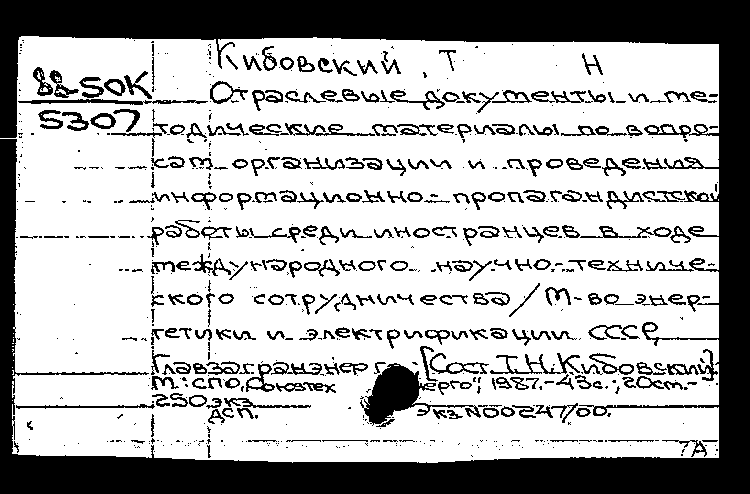 Кибовский, Т Н
88-50К
5307
Отраслевые документы и ме-
тодические материалы по вопро-
сам организации и проведения
информационно-пропагандистской
работы среди иностранцев в ходе
международного научно-техниче-
ского сотрудничества / М-во энер-
гетики и электрификации СССР,
Главзагранэнерго; [Сост. Т.Н. Кибовский].
М.: СПО „Союзтех энерго", 1987.-43с.; 20см.-
250 экз
дсп. Экз N00247/00.
7А